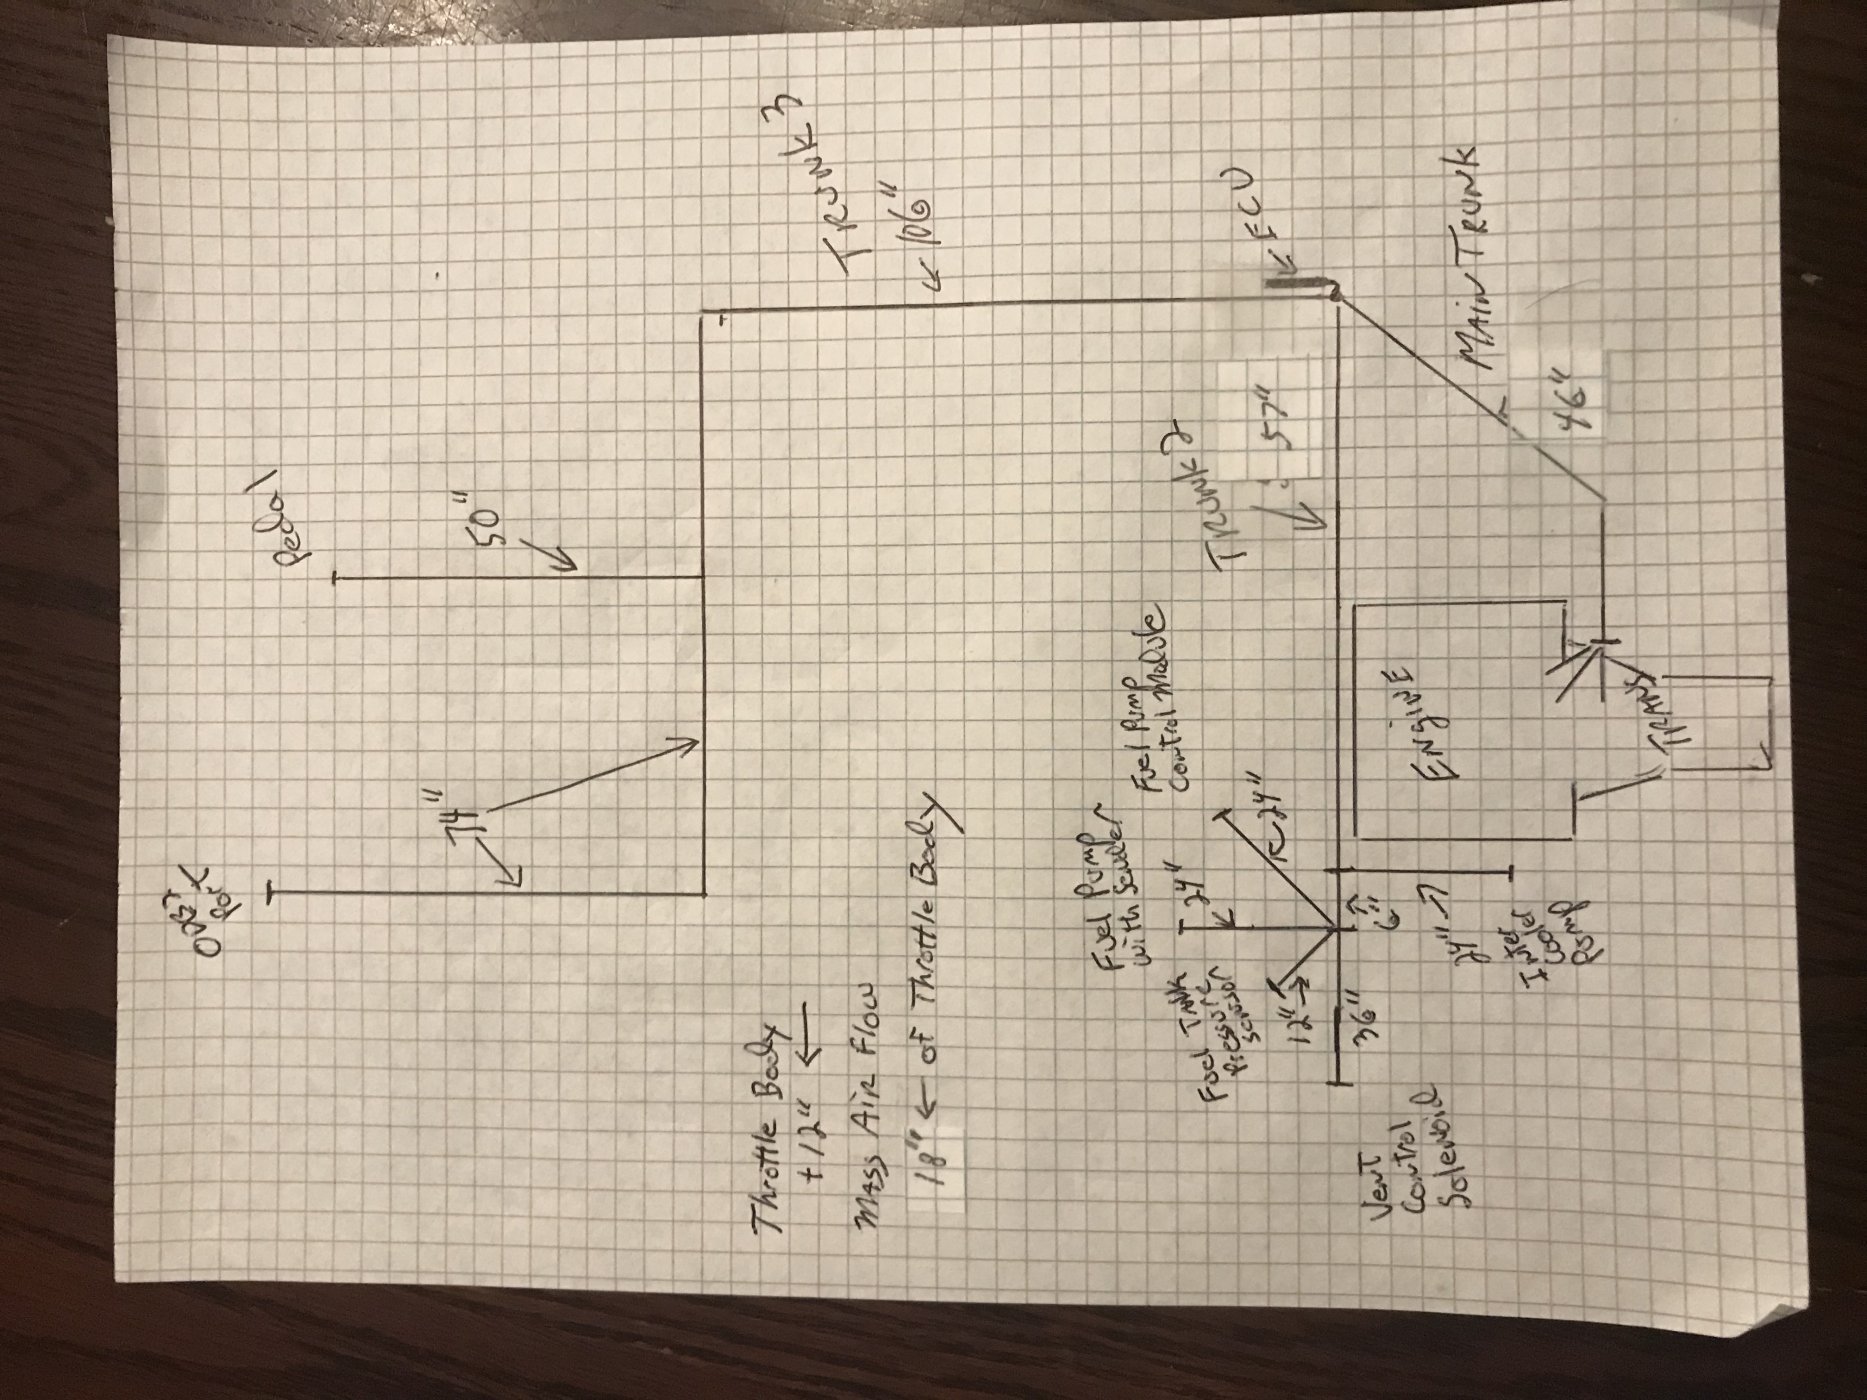 OBDII
Port
Pedal
74"
50"
TRUNK 3
106"
Throttle Body
+12"
Mass Air Flow
18" ← of Throttle Body
Fuel Pump
with Sender
24"
Fuel Pump
Control Module
24"
Fuel TANK
Pressure
Sensor
12"
6"
36"
24"
Inter
Cooler
Pump
Vent
Control
Solenoid
TRUNK 2
57"
ECU
MAIN TRUNK
46"
ENGINE
TRANS